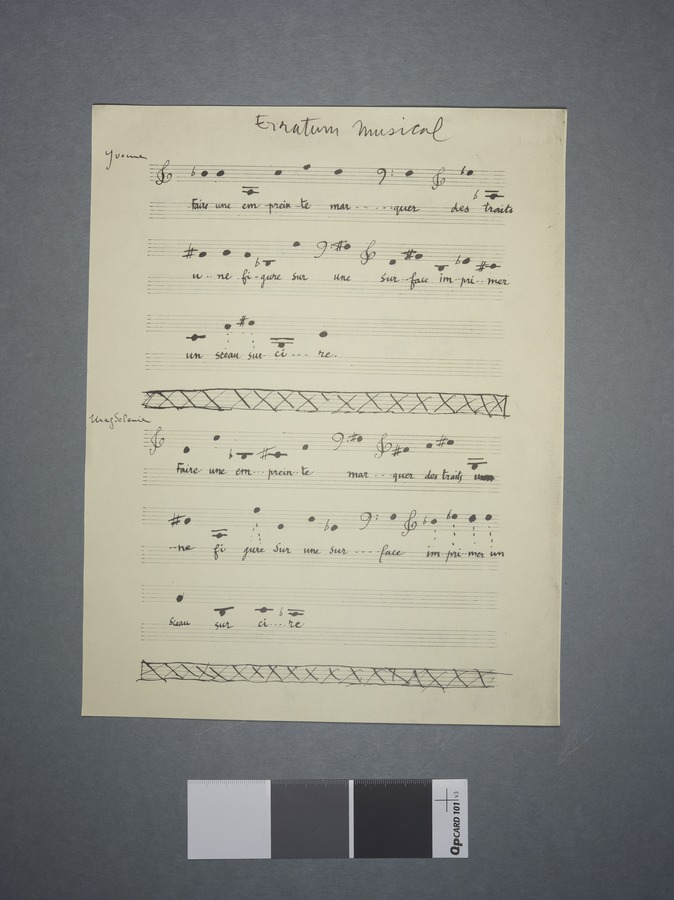 Erratum Musical
Yvonne
Faire une em prein te mar - - - - - quer des traits
u - - ne fi - gure sur une sur - face im - pri - - mer
un sceau sur ci - - - - re.
Magdeleine
Faire une em - - prein - te mar - - - quer des traits
- - ne fi gure sur une sur - - - - face im pri mer un
sceau sur ci - - - - re
QPCARD 101 v3